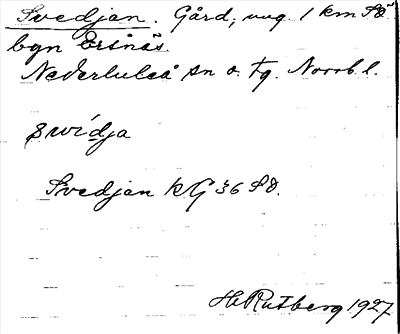 Svedjan. Gård, ung. 1 km SO
byn Ersnäs.
Nederluleå sn o. tg. Norrb. l.
swídja
Svedjan kG 36 SO.
H. Rutberg 1927